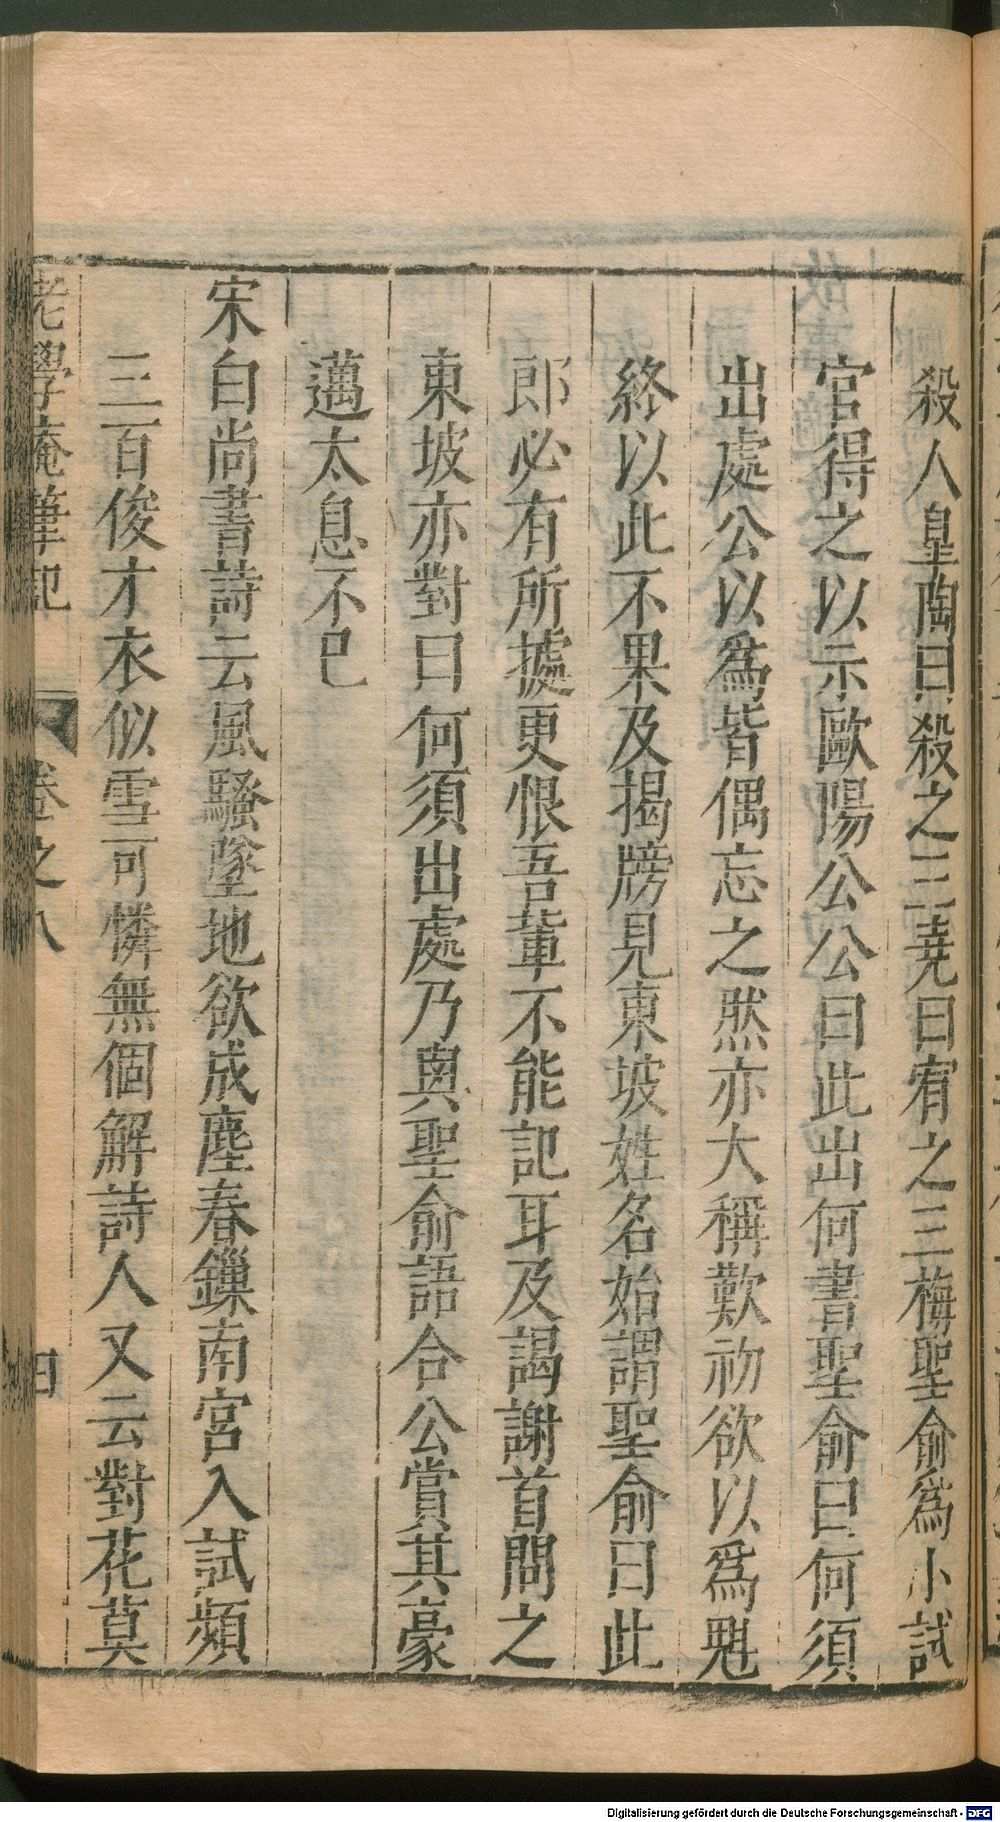 殺人皐陶曰殺之三堯曰宥之三梅聖俞爲小試
官得之以示歐陽公公曰此出何書聖俞曰何須
出處公以爲皆偶忘之然亦大稱歎初欲以爲魁
終以此不果及揭牓見東坡姓名始謂聖俞曰此
郎必有所據更恨吾輩不能記耳及謁謝首問之
東坡亦對曰何須出處乃與聖俞語合公賞其豪
邁太息不已
宋白尚書詩云風騷墜地欲成塵春鏁南宮入試頻
三百俊才衣似雪可憐無個解詩人又云對花莫
老學庵筆記 卷之八 四
Digitalisierung gefördert durch die Deutsche Forschungsgemeinschaft - DFG